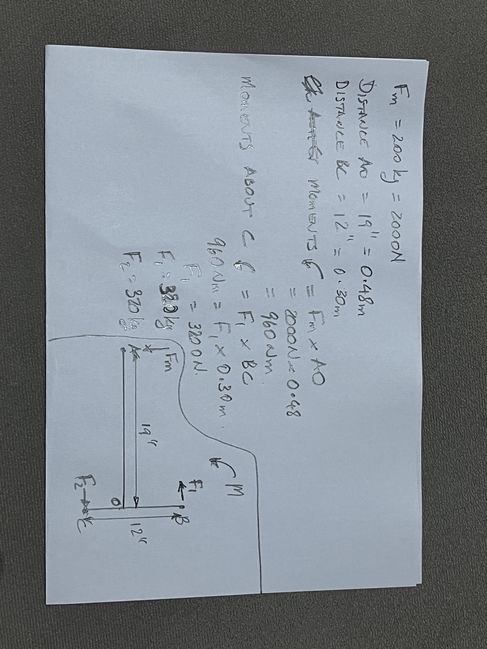 Fm = 200kg = 2000N
DISTANCE AO = 19" = 0.48m
DISTANCE BC = 12" = 0.30m
MOMENTS = Fm × AO
= 2000N × 0.48
= 960Nm.
MOMENTS ABOUT C = F1 × BC
960Nm = F1 × 0.30m.
F1 = 3200N.
F1 = 320kg
F2 = 320kg
Fm
A
19"
M
F1
B
O
12"
F2
C